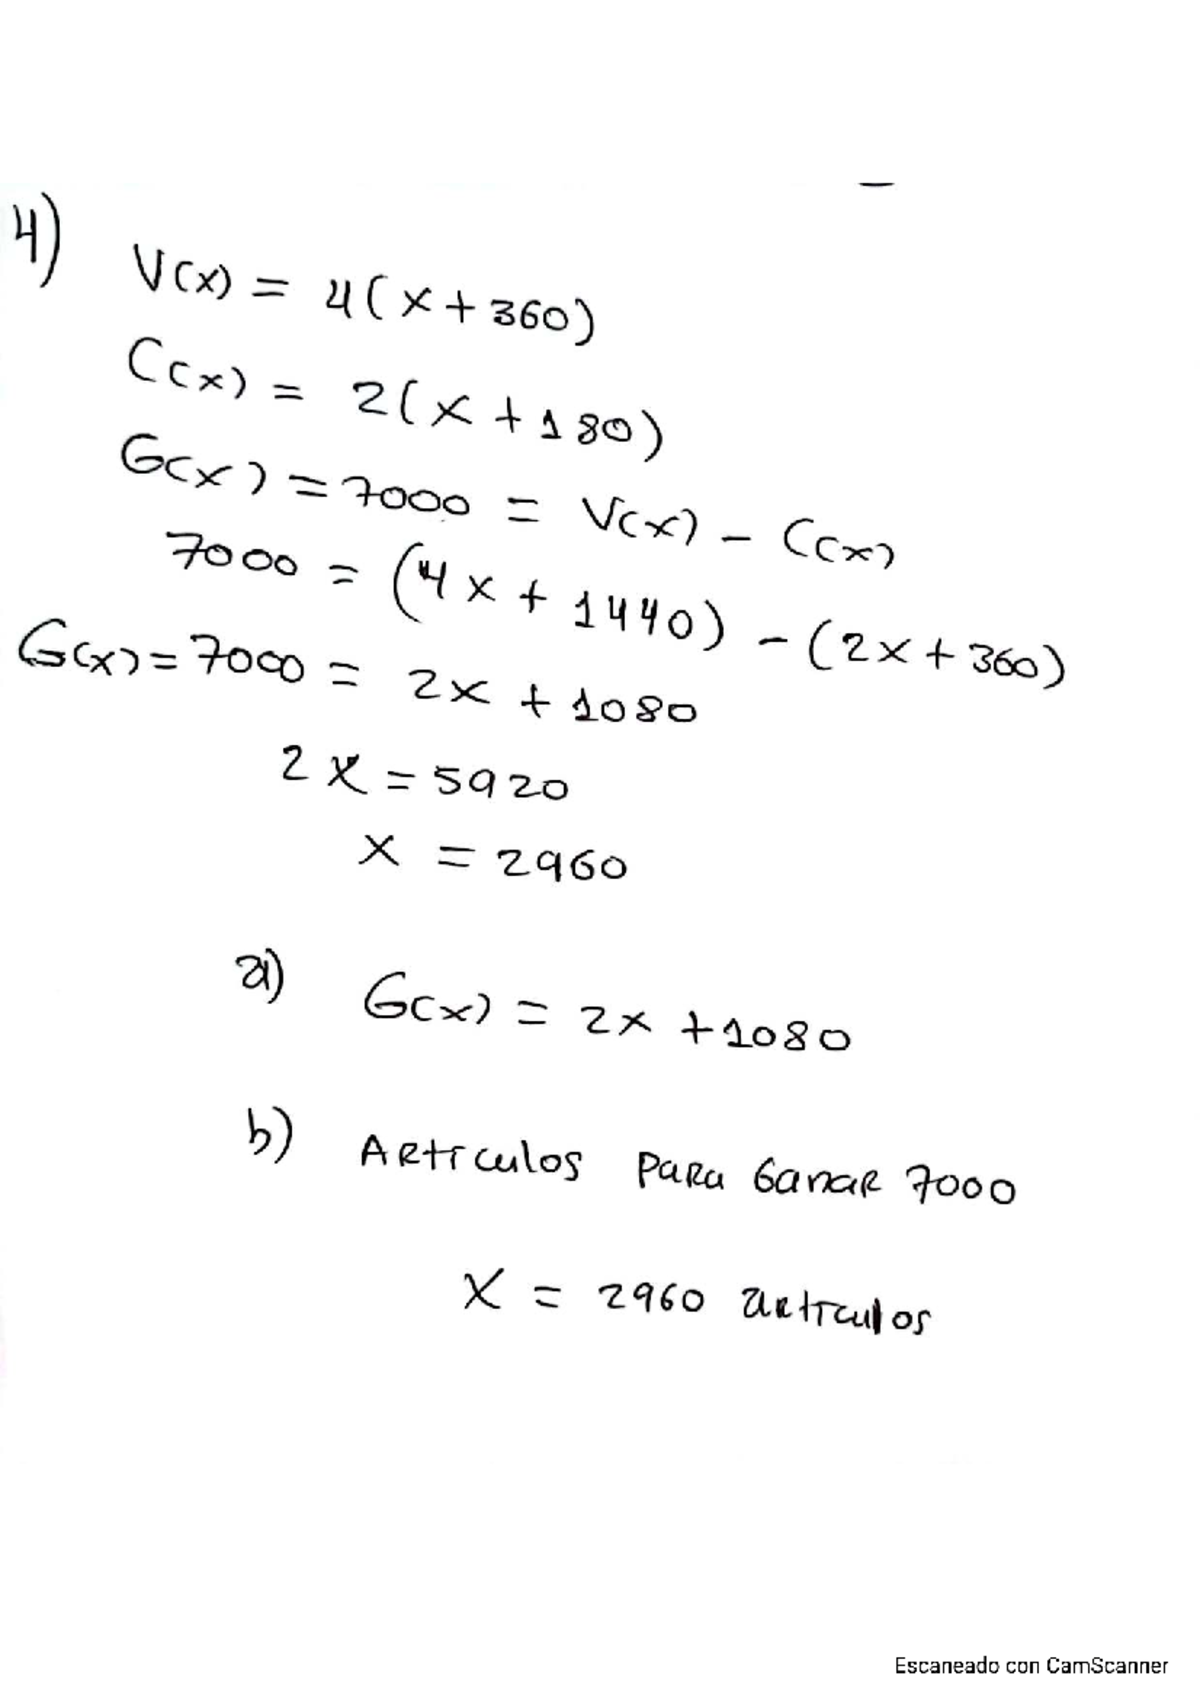 4)
V(x) = 4(x+360)
C(x) = 2(x+180)
G(x) = 7000 = V(x) - C(x)
7000 = (4x + 1440) - (2x+360)
G(x) = 7000 = 2x + 1080
2x = 5920
x = 2960
a) G(x) = 2x + 1080
b) Artículos para Ganar 7000
x = 2960 artículos
Escaneado con CamScanner